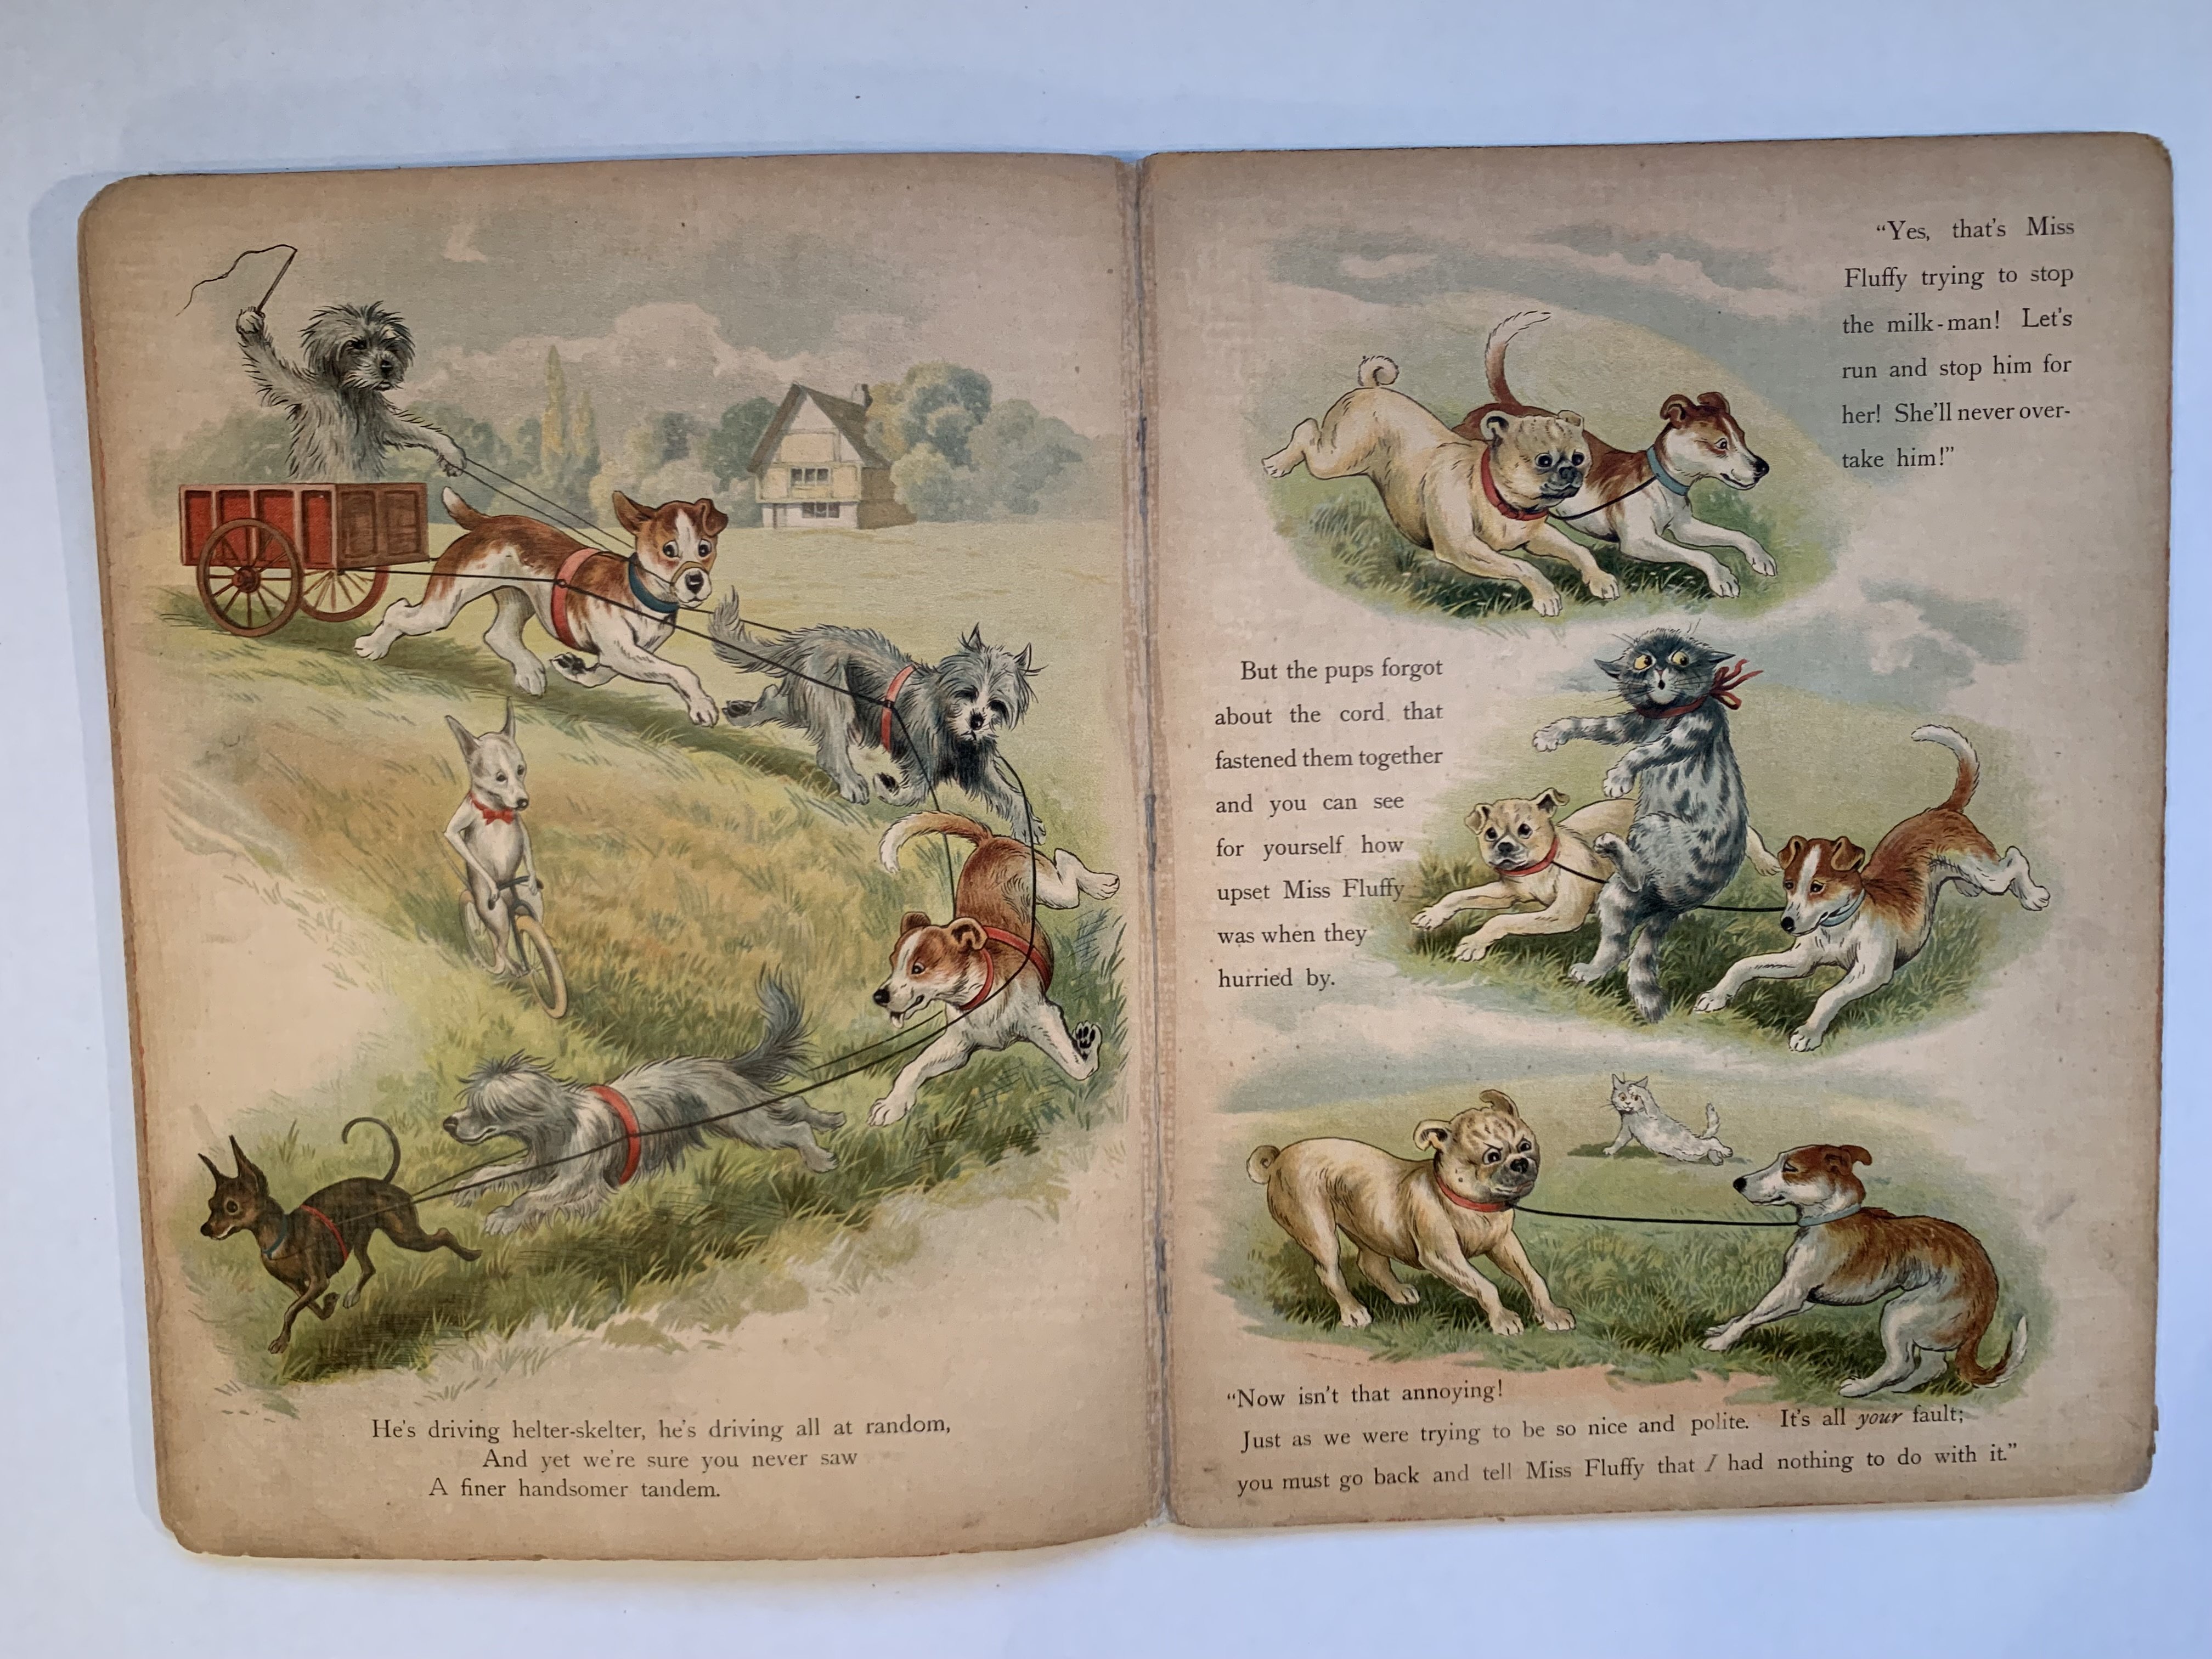 He's driving helter-skelter, he's driving all at random,
And yet we're sure you never saw
A finer handsomer tandem.
“Yes, that's Miss
Fluffy trying to stop
the milk-man! Let's
run and stop him for
her! She'll never over-
take him!”
But the pups forgot
about the cord that
fastened them together
and you can see
for yourself how
upset Miss Fluffy
was when they
hurried by.
“Now isn't that annoying!
Just as we were trying to be so nice and polite. It's all your fault;
you must go back and tell Miss Fluffy that I had nothing to do with it.”